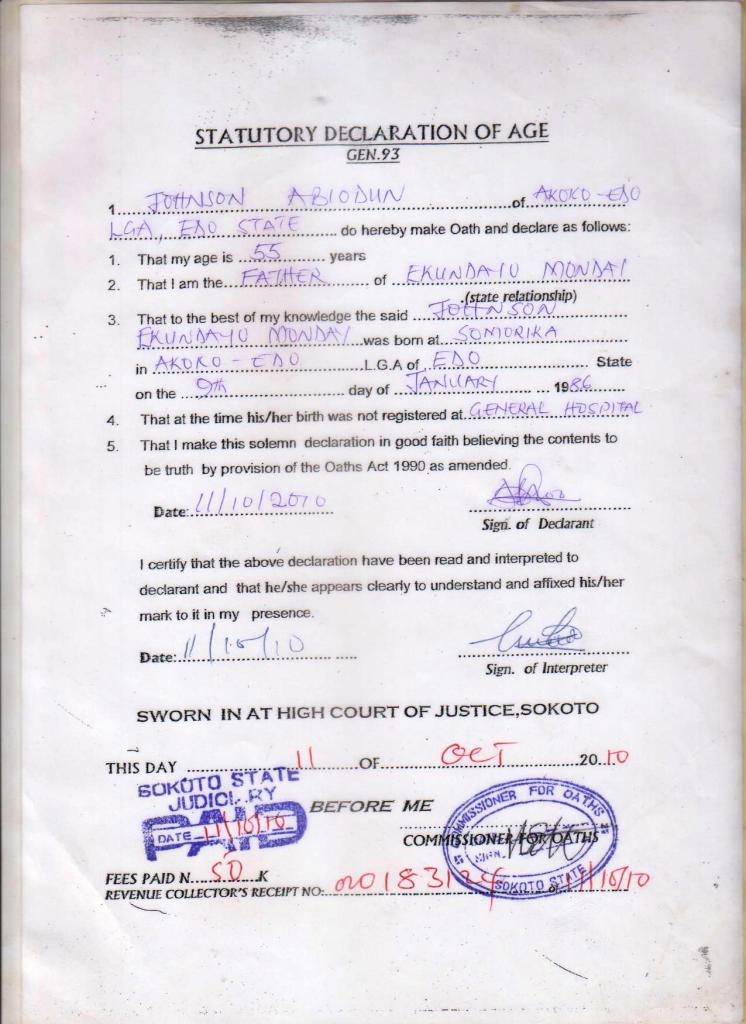 STATUTORY DECLARATION OF AGE
GEN.93
1 JOHNSON ABIODUN of AKOKO-EDO
LGA, EDO STATE do hereby make Oath and declare as follows:
1. That my age is 55 years
2. That I am the FATHER of EKUNDAYO MONDAY
(state relationship)
3. That to the best of my knowledge the said JOHNSON
EKUNDAYO MONDAY was born at SOMORIKA
in AKOKO-EDO L.G.A of EDO State
on the 9th day of JANUARY 1986
4. That at the time his/her birth was not registered at GENERAL HOSPITAL
5. That I make this solemn declaration in good faith believing the contents to
be truth by provision of the Oaths Act 1990 as amended.
Date: 11/10/2010
Sign. of Declarant
I certify that the above declaration have been read and interpreted to
declarant and that he/she appears clearly to understand and affixed his/her
mark to it in my presence.
Date: 11/10/10
Sign. of Interpreter
SWORN IN AT HIGH COURT OF JUSTICE,SOKOTO
THIS DAY 11 OF OCT 2010
SOKOTO STATE
JUDICI RY
PAID
DATE 11/10/10
BEFORE ME
COMMISSIONER FOR OATHS
COMMISSIONER FOR OATHS
SOKOTO STATE
FEES PAID N 50 K
REVENUE COLLECTOR'S RECEIPT NO: 020183124 of 11/10/10